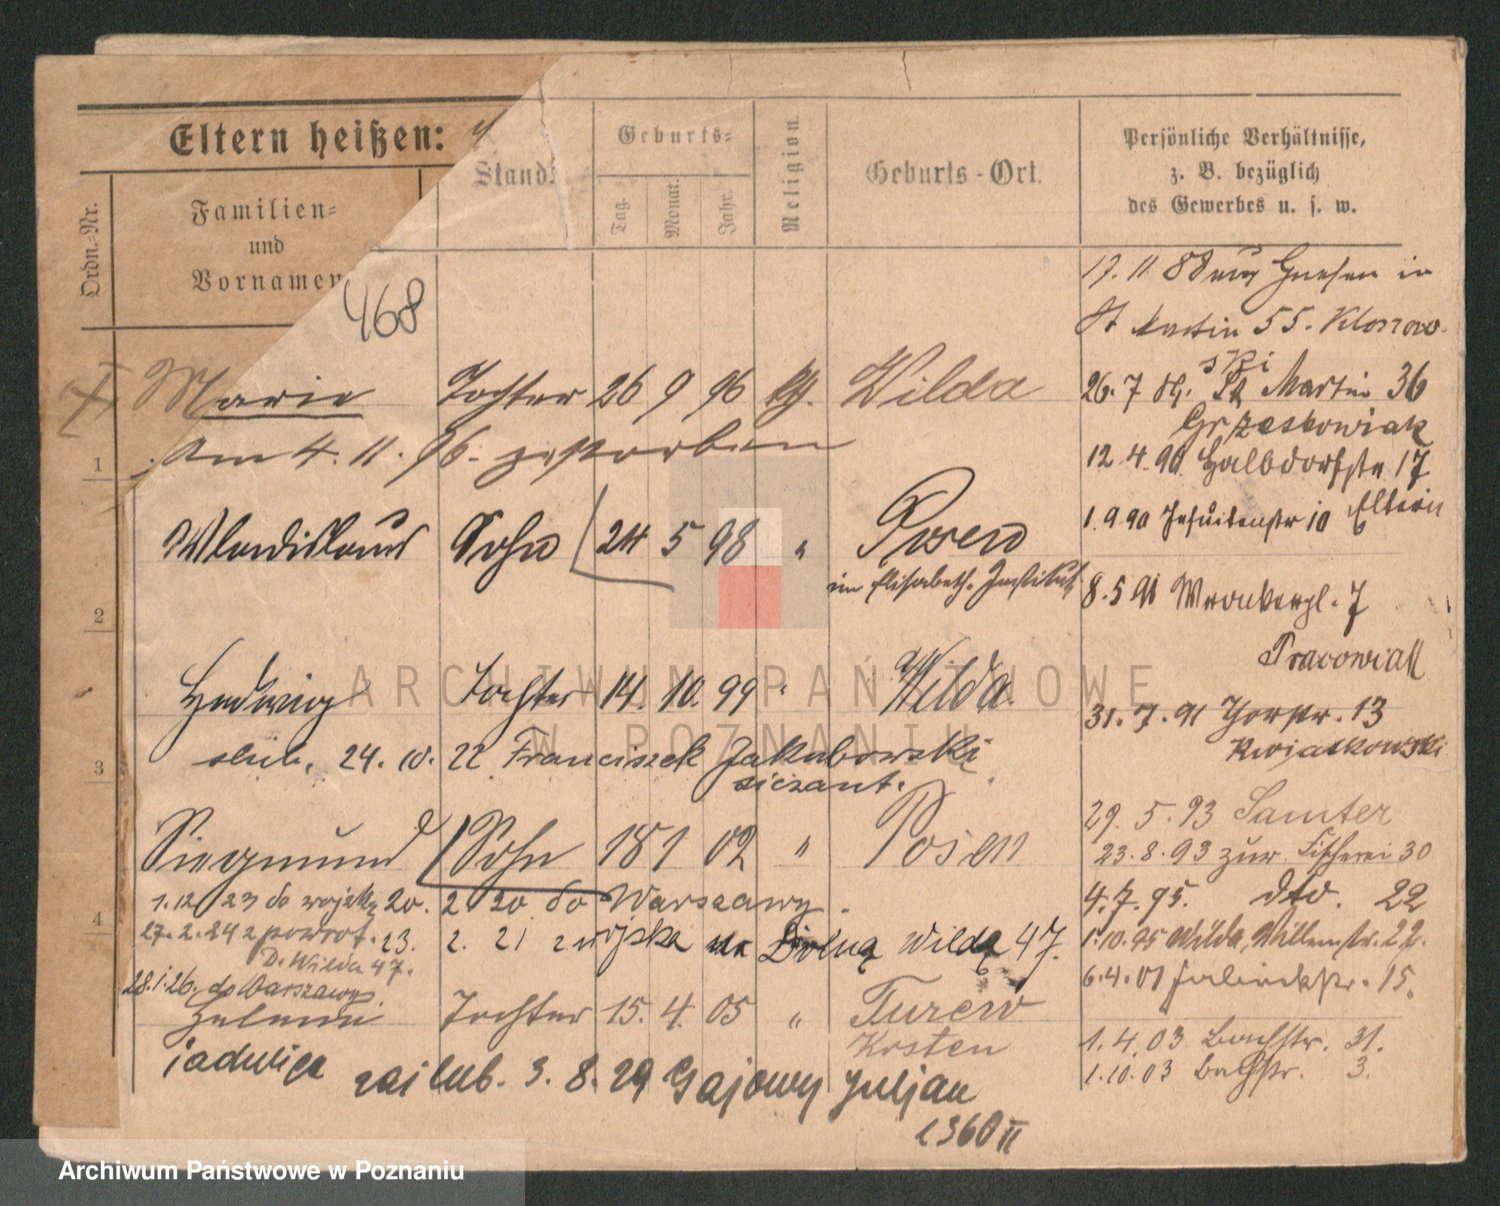 Eltern heißen:
Stand:
Geburts=
Tag.
Monat.
Jahr.
Religion.
Geburts-Ort.
Persönliche Verhältnisse,
z. B. bezüglich
des Gewerbes u. s. w.
Ordn.-Nr.
Familien=
und
Vornamen
468
17. 11 88 aus Gnesen in
St Martin 55. Kloszow-
ski
Marie Tochter 26 9 96 k. Wilda
26. 7 St Martin 36
Grzeskowiak
1 Am 4. 11. 96. gestorben
12.4.90 Halbdorfstr 17
1.9.90 Jesuitenstr 10 Eltern
Wladislaus Sohn 24 5 98 " Posen
im Elisabeth. Institut
2
8.5 91 Wronkerpl. 7
Pracowiak
Hedwig Tochter 14. 10. 99 " Wilda.
31. 7. 91 Thorstr. 13
Kwiatkowski
3 ślub. 24. 10. 22 Franciszek Jakubowski
sierżant.
29. 5. 93 Samter
Siegmund Sohn 18 1 02 " Posen
23.8.93 zur Fischerei 30
1.12 23 do wojska 20. 2 20 do Warszawy.
4.7.95. dto. 22
4
27.2.24 z powrot. 23. 2. 21 z wojska na Dolną Wildę 47.
D. Wilda 47.
1.10.95 Wilda, Willemstr. 22.
28.1.26. do Warszawy.
6.4.01 Fabrikstr. 15.
Helene Tochter 15. 4. 05 " Turew
Kosten
1. 4. 03 Bachstr. 31.
1.10.03 Bachstr. 3.
jadwiga zaślub. 3. 8. 29 Gajowy Juljan
1360 II
ARCHIWUM PAŃSTWOWE
W POZNANIU
Archiwum Państwowe w Poznaniu